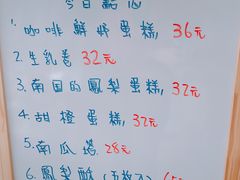 今日點心
1.咖啡鮮奶蛋糕,36元
2.生乳卷 32元
3.南国的鳳梨蛋糕,32元
4.甜橙蛋糕,32元
5.南瓜塔 28元
6.鳳梨酥